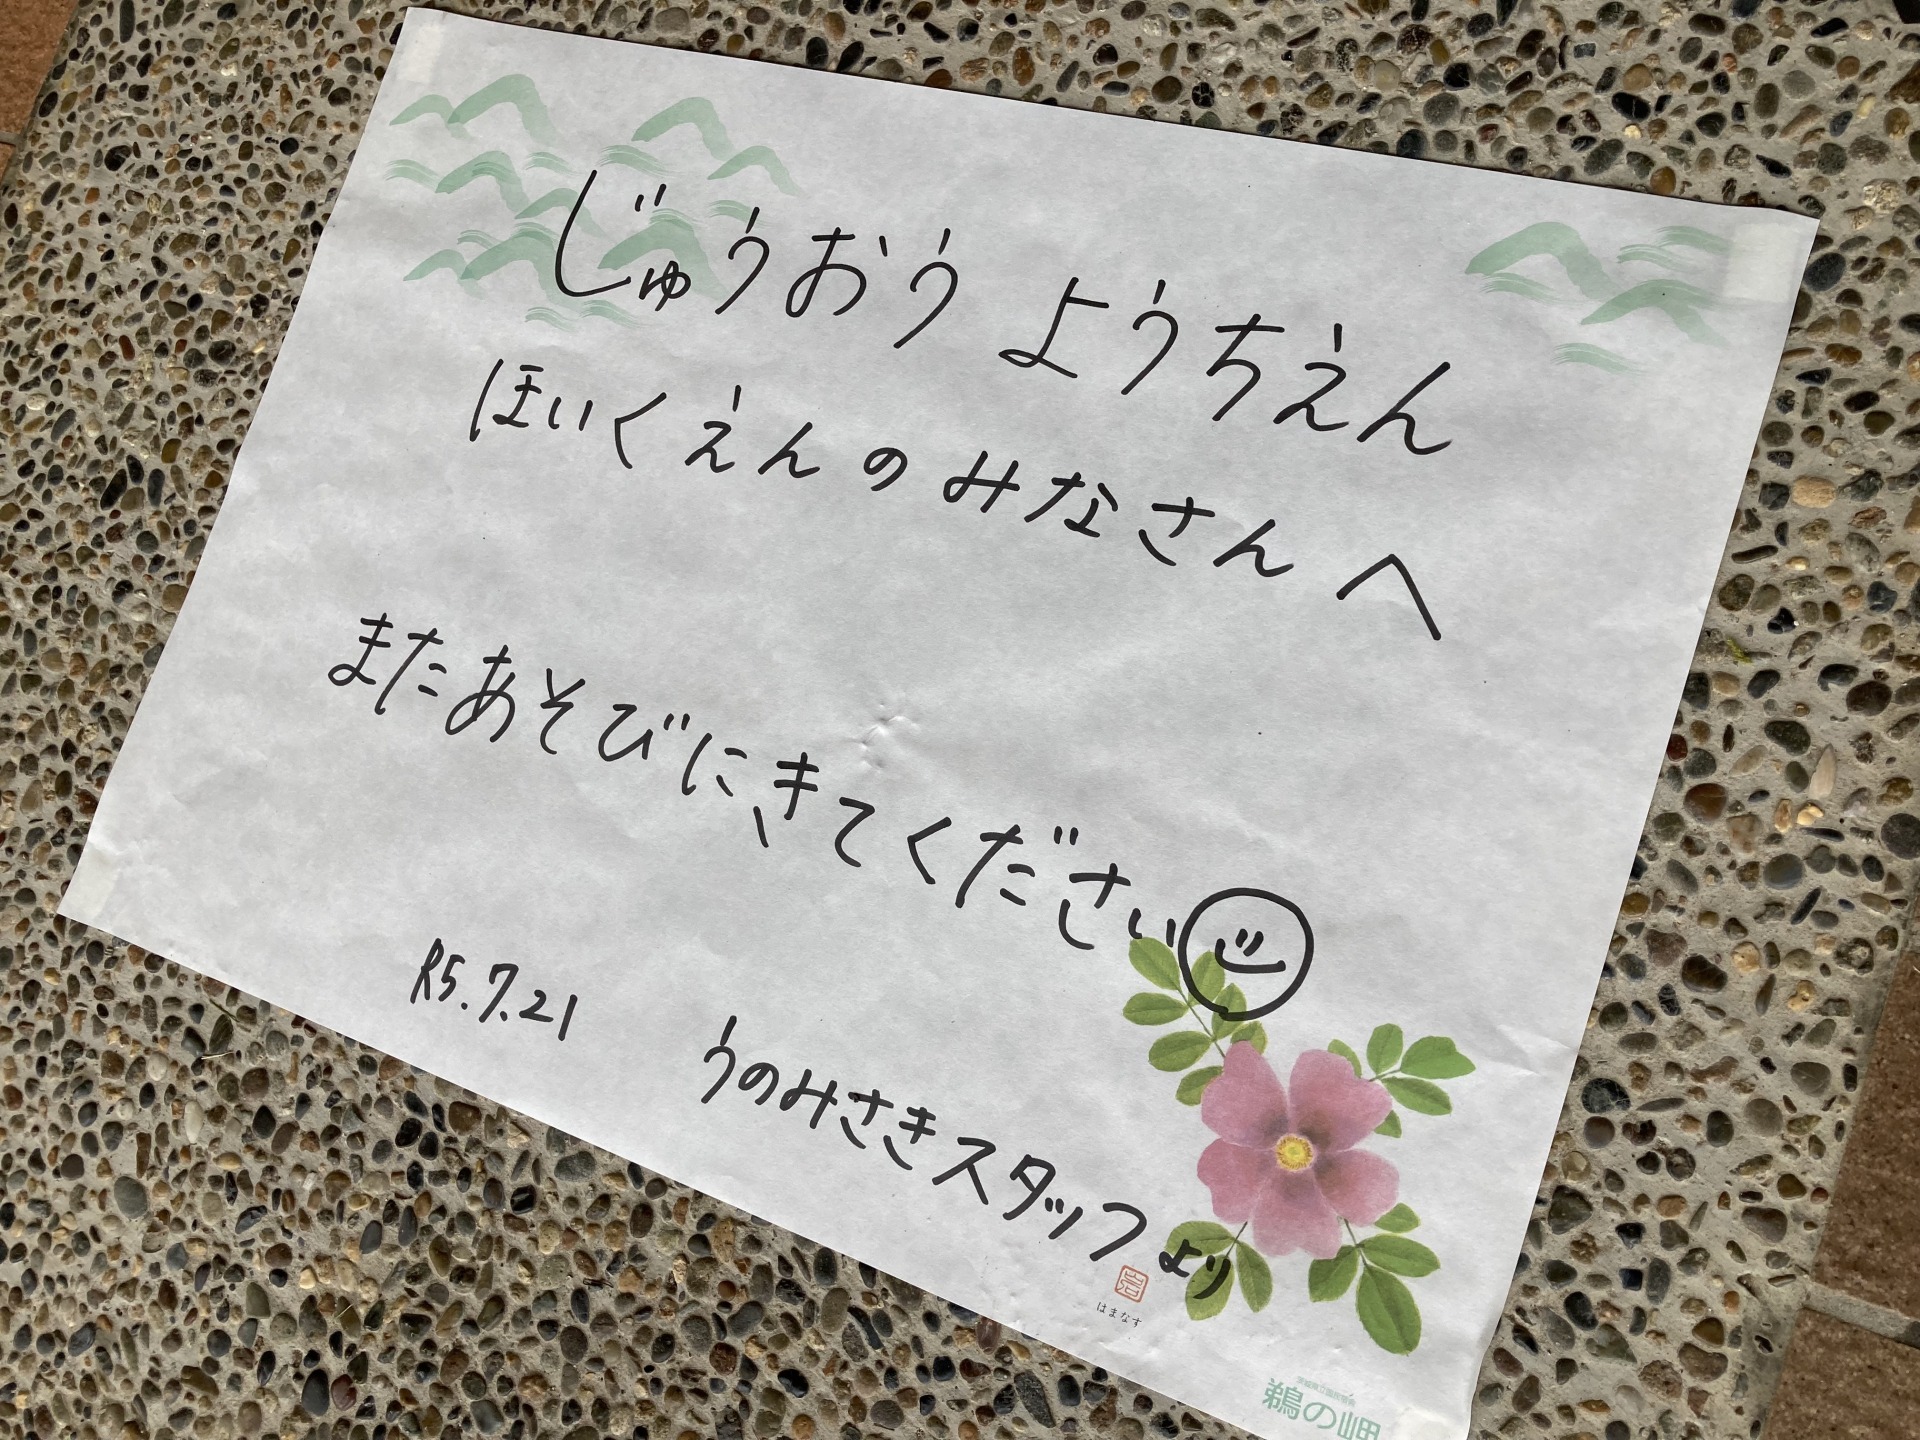 じゅうおう ようちえん
ほいくえんのみなさんへ
またあそびにきてください
R5.7.21
うのみさきスタッフより
はまなす
鵜の岬